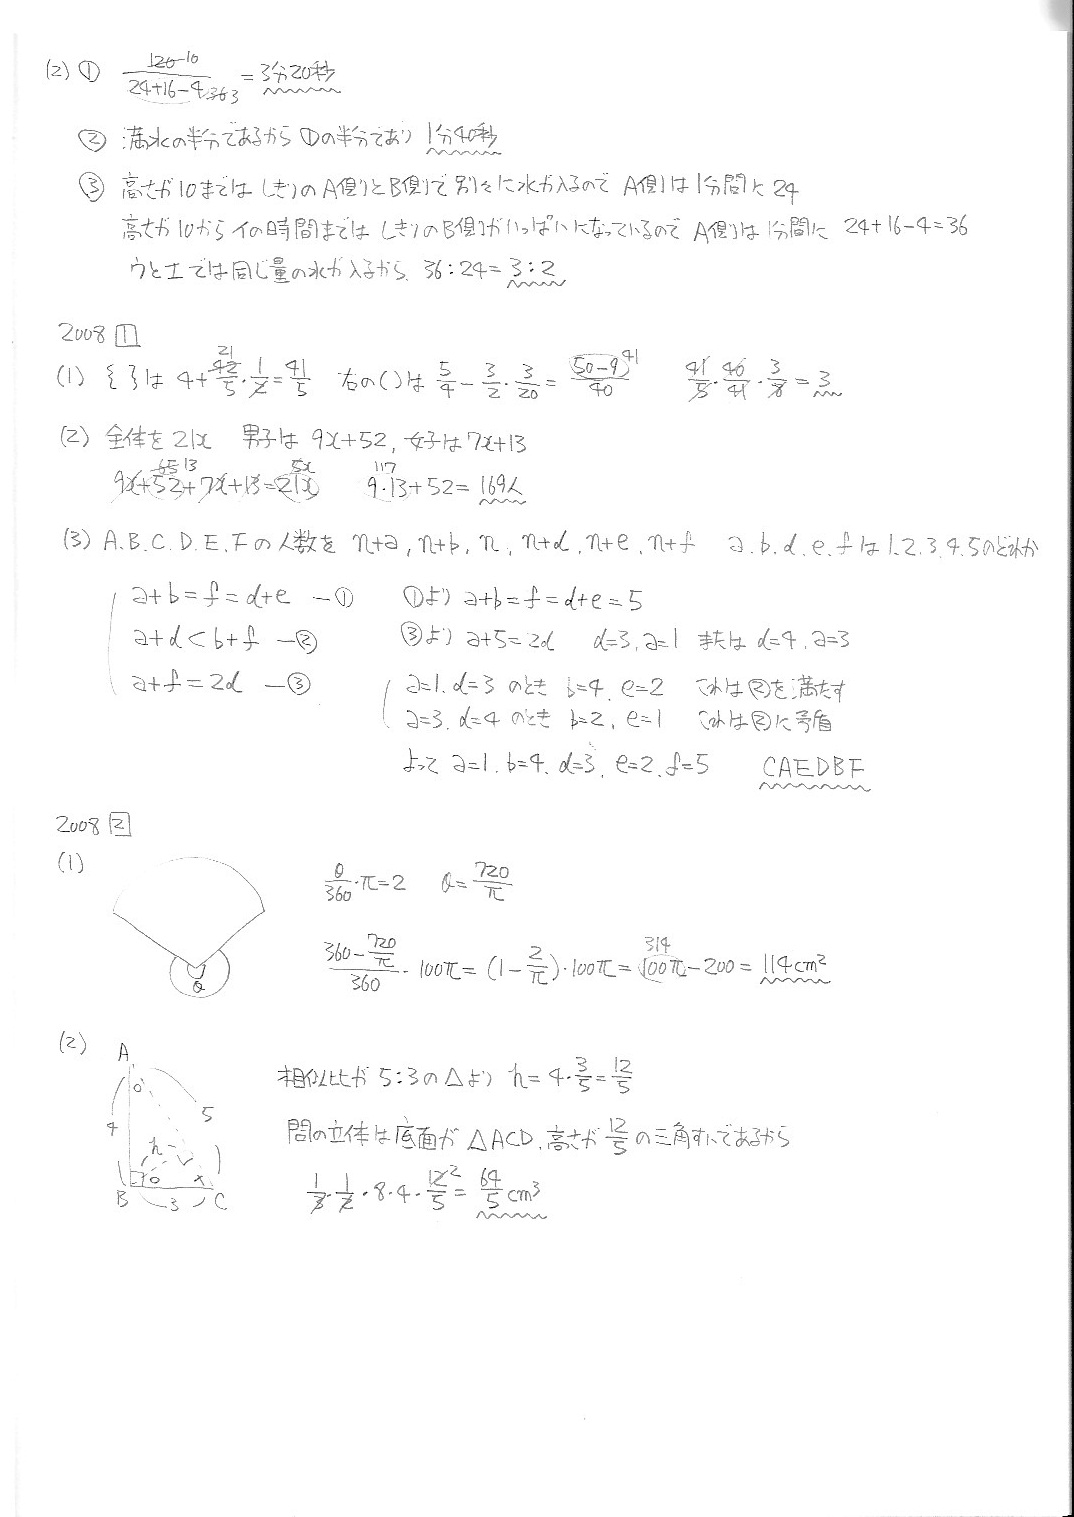 (2) ① 120 10 / 24+16-4 36 3 = 3分20秒
② 満水の半分であるから①の半分であり 1分40秒
③ 高さが10まではしきりのA側とB側で別々に水が入るので A側は1分間に 24
高さが10からイの時間まではしきりのB側がいっぱいになっているので A側は1分間に 24+16-4=36
ウとエでは同じ量の水が入るから、36:24=3:2
2008 1
(1) { }は 4+42/5 21・1/2=41/5 右の( )は 5/4-3/2・3/20=(50-9)/40 41 41/5・40/41・3/8=3
(2) 全体を21x 男子は 9x+52, 女子は 7x+13
9x+52+7x+13=21x 65 13 5x 9・13+52=169人 117
(3) A.B.C.D.E.Fの人数を n+a, n+b, n, n+d, n+e, n+f a.b.d.e.fは1.2.3.4.5のどれか
a+b=f=d+e —① ①より a+b=f=d+e=5
a+d<b+f —② ③より a+5=2d d=3,a=1 または d=4,a=3
a+f=2d —③ a=1.d=3 のとき b=4, e=2 これは②を満たす
a=3.d=4 のとき b=2, e=1 これは②に矛盾
よって a=1.b=4.d=3.e=2.f=5 CAEDBF
2008 2
(1) θ/360・π=2 θ=720/π
θ
(360-720/π)/360・100π=(1-2/π)・100π=100π-200=114cm² 314
(2) A
相似比が 5:3の△より h=4・3/5=12/5
4 5 h
問の立体は底面が△ACD.高さが12/5の三角すいであるから
B 3 C
1/3・1/2・8・4・12/5 2=64/5 cm³